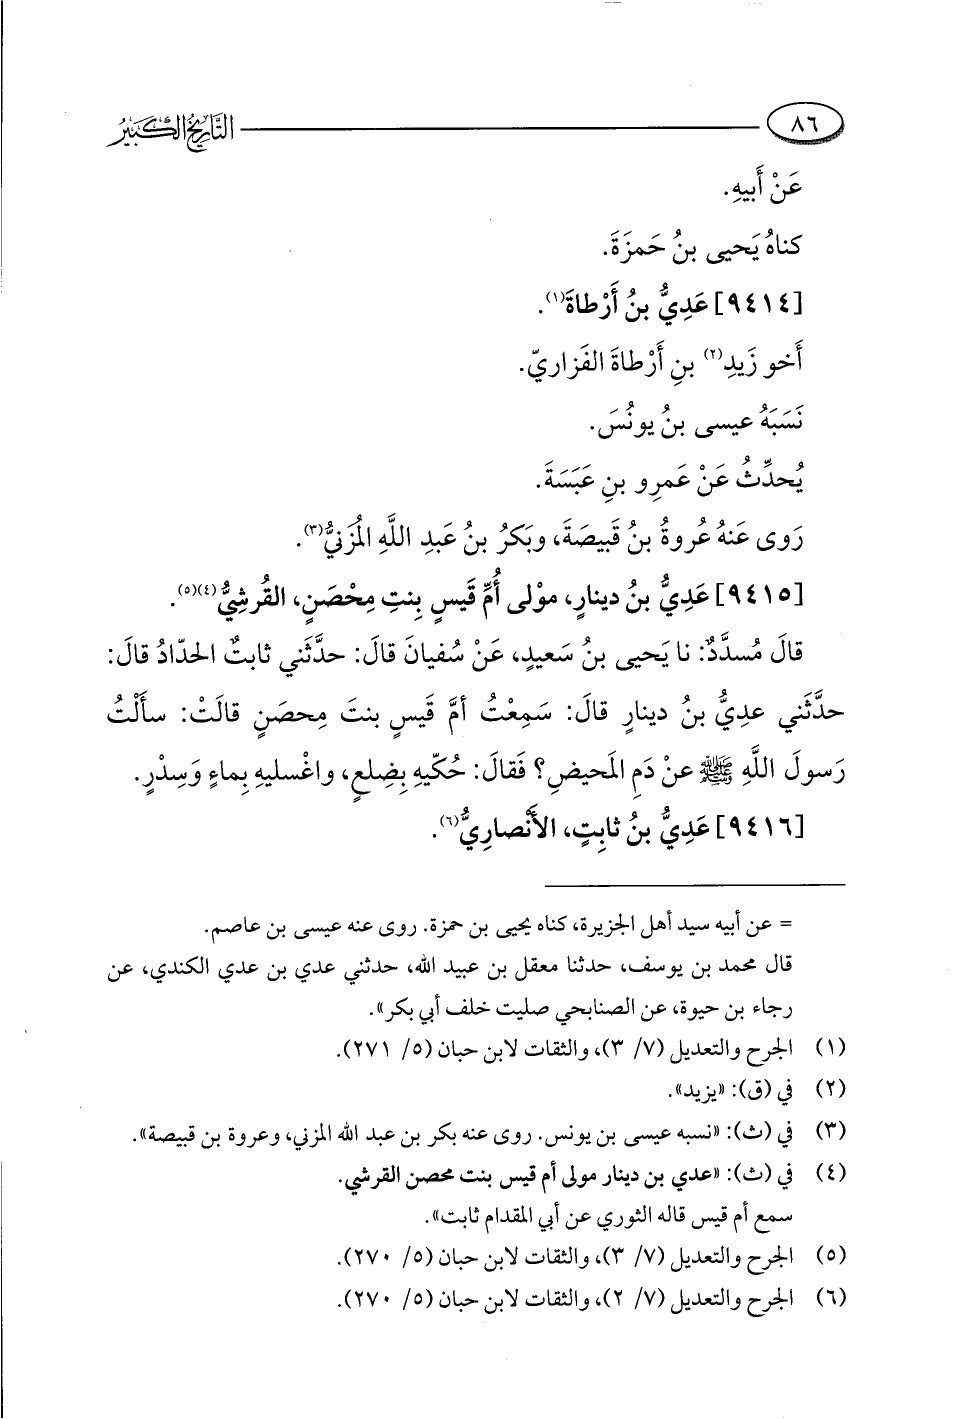 ٨٦ التَّارِيخُ الكَبِيرُ
عَنْ أَبيهِ.
كناهُ يَحيى بنُ حَمزَةَ.
[٩٤١٤] عَدِيُّ بنُ أَرْطاةَ(١).
أَخو زَيدِ(٢) بنِ أَرْطاةَ الفَزاريّ.
نَسَبَهُ عيسى بنُ يونُسَ.
يُحدِّثُ عَنْ عَمرِو بنِ عَبَسَةَ.
رَوى عَنهُ عُروةُ بنُ قَبيصَةَ، وبَكرُ بنُ عَبدِ اللَّهِ المُزَنيُّ(٣).
[٩٤١٥] عَدِيُّ بنُ دينارٍ، موْلى أُمِّ قَيسٍ بِنتِ مِحْصَنٍ، القُرشِيُّ(٤)(٥).
قالَ مُسدَّدٌ: نا يَحيى بنُ سَعيدٍ، عَنْ سُفيانَ قالَ: حدَّثَني ثابتٌ الحدّادُ قالَ:
حدَّثَني عديُّ بنُ دينارٍ قالَ: سَمِعْتُ أمَّ قَيسٍ بنتَ مِحصَنٍ قالَتْ: سأَلْتُ
رَسولَ اللَّهِ ﷺ عنْ دَمِ المَحيضِ؟ فَقالَ: حُكّيهِ بِضِلعٍ، واغْسليهِ بِماءٍ وَسِدْرٍ.
[٩٤١٦] عَدِيُّ بنُ ثابِتٍ، الأَنْصارِيُّ(٦).
= عن أبيه سيد أهل الجزيرة، كناه يحيى بن حمزة. روى عنه عيسى بن عاصم.
قال محمد بن يوسف، حدثنا معقل بن عبيد الله، حدثني عدي بن عدي الكندي، عن
رجاء بن حيوة، عن الصنابحي صليت خلف أبي بكر».
(١) الجرح والتعديل (٧/ ٣)، والثقات لابن حبان (٥/ ٢٧١).
(٢) في (ق): «يزيد».
(٣) في (ث): «نسبه عيسى بن يونس. روى عنه بكر بن عبد الله المزني، وعروة بن قبيصة».
(٤) في (ث): «عدي بن دينار مولى أم قيس بنت محصن القرشي.
سمع أم قيس قاله الثوري عن أبي المقدام ثابت».
(٥) الجرح والتعديل (٧/ ٣)، والثقات لابن حبان (٥/ ٢٧٠).
(٦) الجرح والتعديل (٧/ ٢)، والثقات لابن حبان (٥/ ٢٧٠).